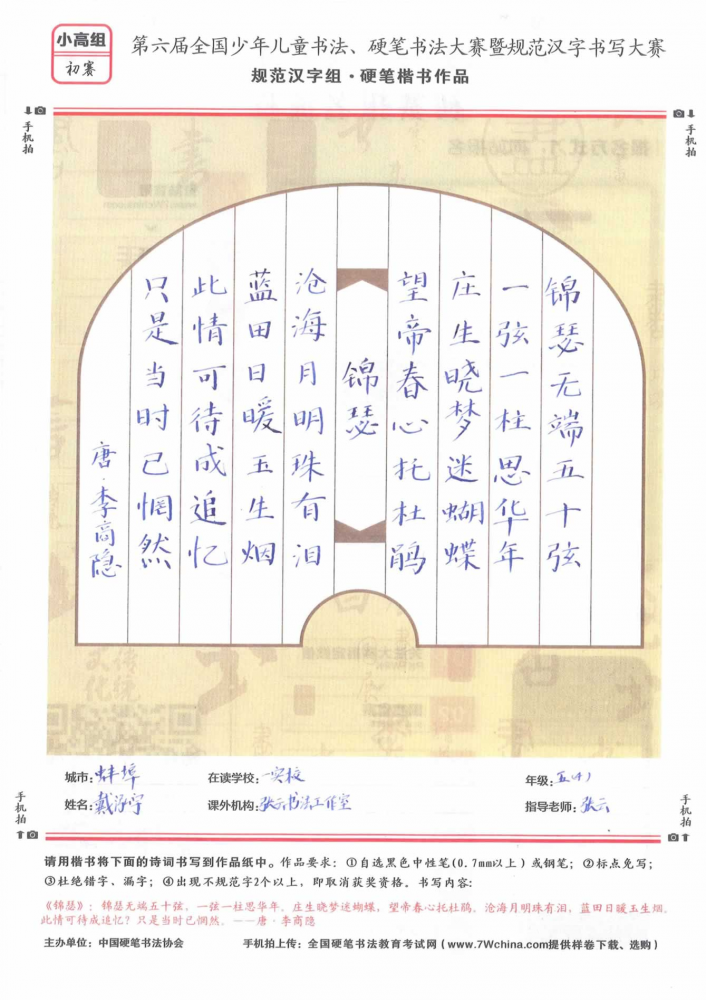 小高组
初赛
第六届全国少年儿童书法、硬笔书法大赛暨规范汉字书写大赛
规范汉字组·硬笔楷书作品
手机拍
手机拍
锦瑟无端五十弦
一弦一柱思华年
庄生晓梦迷蝴蝶
望帝春心托杜鹃
锦瑟
沧海月明珠有泪
蓝田日暖玉生烟
此情可待成追忆
只是当时已惘然
唐·李商隐
城市:蚌埠
在读学校:一实校
年级:五(4)
姓名:戴
课外机构:张云书法工作室
指导老师:张云
手机拍
手机拍
请用楷书将下面的诗词书写到作品纸中。作品要求:①自选黑色中性笔(0.7mm以上)或钢笔;②标点免写;
③杜绝错字、漏字;④出现不规范字2个以上,即取消获奖资格。书写内容:
《锦瑟》:锦瑟无端五十弦,一弦一柱思华年。庄生晓梦迷蝴蝶,望帝春心托杜鹃。沧海月明珠有泪,蓝田日暖玉生烟。
此情可待成追忆?只是当时已惘然。——唐·李商隐
主办单位:中国硬笔书法协会
手机拍上传:全国硬笔书法教育考试网(www.7Wchina.com提供样卷下载、选购)